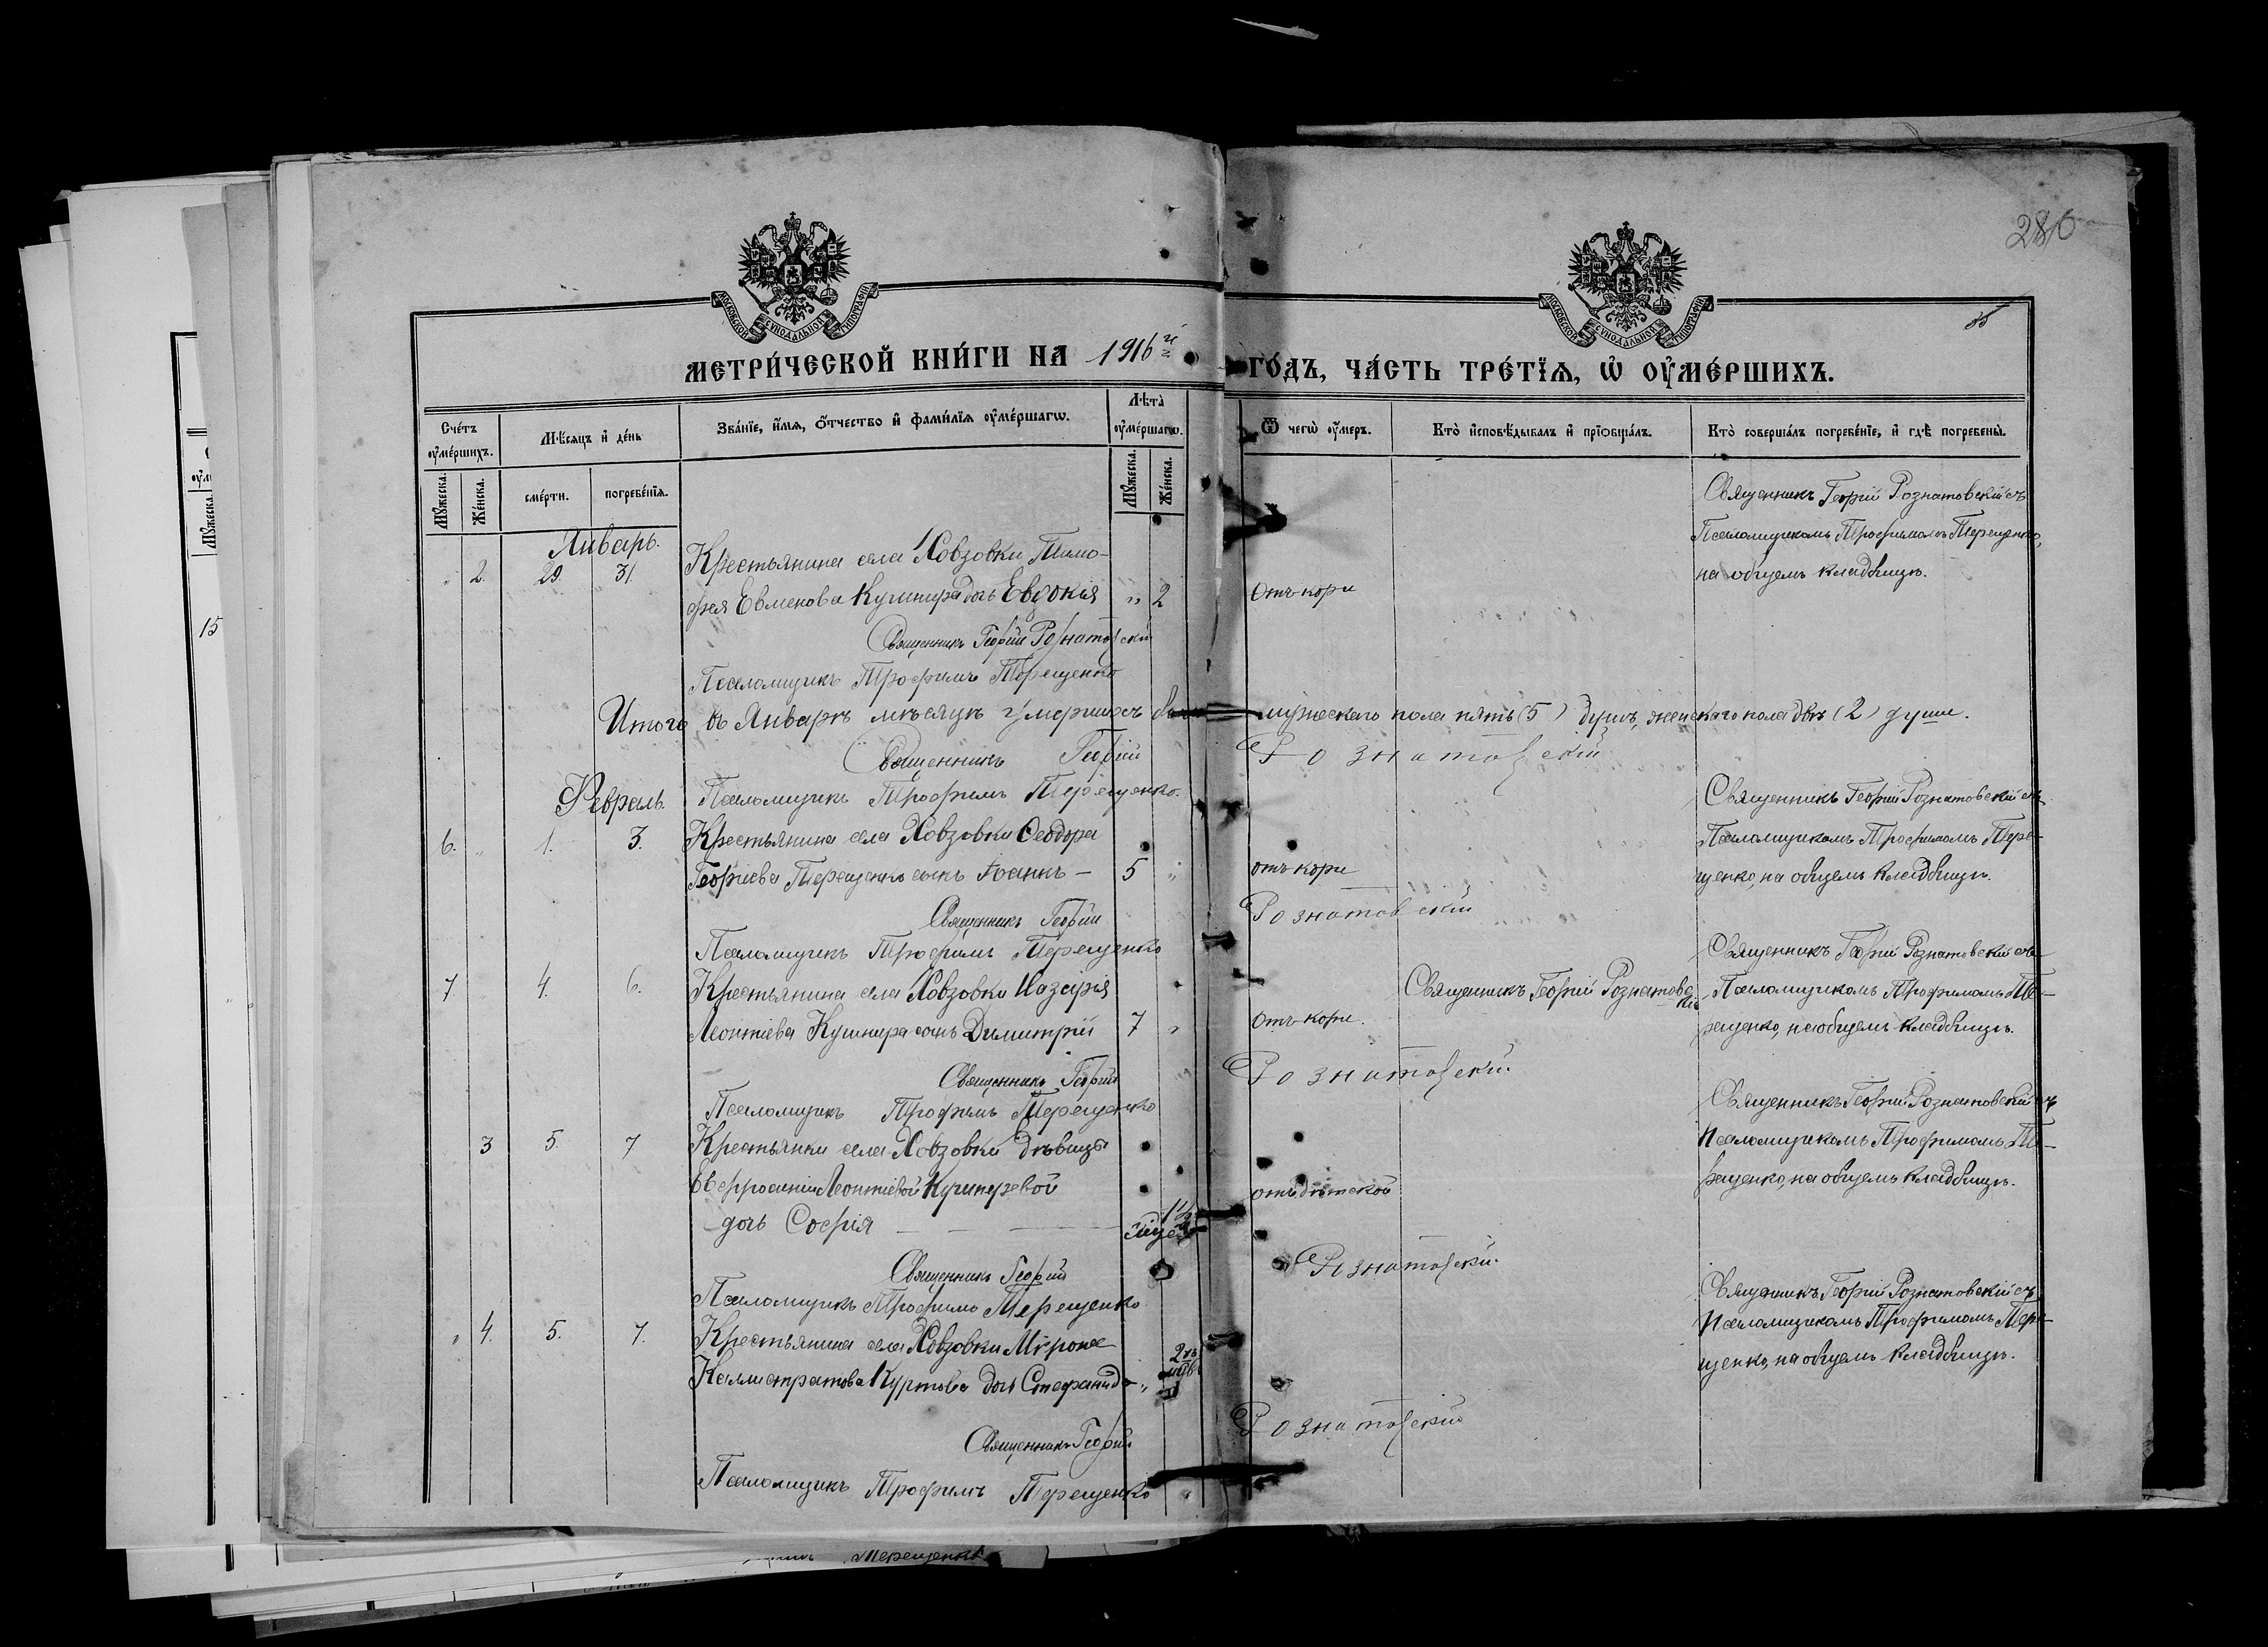 280
55
МОСКОВСКОЙ СѴНОДАЛЬНОЙ ТИПОГРАФІИ
МОСКОВСКОЙ СѴНОДАЛЬНОЙ ТИПОГРАФІИ
МЕТРИ́ЧЕСКОЙ КНИ́ГИ НА 1916й ГО́ДЪ, ЧА́СТЬ ТРЕ́ТІѦ, Ѡ҆ ОУ҆МЕ́РШИХЪ.
Сче́тъ оу҆ме́ршихъ.
Мѣ́сяцъ и҆ де́нь
Зва́нїе, и҆́мѧ, ѻ҆́тчество и҆ фами́лїѧ оу҆ме́ршагѡ.
Лѣ́та оу҆ме́ршагѡ.
Ѿ чегѡ̀ оу҆́меръ.
Кто̀ и҆сповѣ́дывалъ и҆ прїѡбща́лъ.
Кто̀ соверша́лъ погребе́нїе, и҆ гдѣ̀ погребены̀.
Мꙋ́жеска.
Же́нска.
сме́рти.
погребе́нїѧ.
Мꙋ́жеска.
Же́нска.
Январь.
" 2. 29. 31. Крестьянина села Ховзовки Тимо-
фея Евменова Кушнира дочь Евдокія " 2 Отъ кори
Священникъ Георгій Рознатовскій съ
Псаломщикомъ Трофимомъ Терещенко,
на общемъ кладбищѣ.
Священникъ Георгій Рознатовскій
Псаломщикъ Трофимъ Терещенко
Итого въ Январѣ мѣсяцѣ умершихъ мужескаго пола пять (5) душъ, женскаго пола двѣ (2) души.
Священникъ Георгій Рознатовскій
Псаломщикъ Трофимъ Терещенко.
Февраль.
6. " 1. 3. Крестьянина села Ховзовки Ѳеодора
Георгіева Терещенко сынъ Іоаннъ – 5 " отъ кори
Священникъ Георгій Рознатовскій съ
Псаломщикомъ Трофимомъ Тере-
щенко, на общемъ кладбищѣ.
Священникъ Георгій Рознатовскій
Псаломщикъ Трофимъ Терещенко
7. 4. 6. Крестьянина села Ховзовки Назарія
Леонтіева Кушнира сынъ Димитрій 7 " Отъ кори.
Священникъ Георгій Рознатовскій
Священникъ Георгій Рознатовскій съ
Псаломщикомъ Трофимомъ Те-
рещенко, на общемъ кладбищѣ.
Священникъ Георгій Рознатовскій
Псаломщикъ Трофимъ Терещенко
3 5. 7 Крестьянки села Ховзовки дѣвицы
Евфросиніи Леонтіевой Кушнеревой
дочь Софія отъ дѣтской
Священникъ Георгій Рознатовскій съ
Псаломщикомъ Трофимомъ Те-
рещенко, на общемъ кладбищѣ.
Священникъ Георгій Рознатовскій
Псаломщикъ Трофимъ Терещенко
" 4. 5. 7. Крестьянина села Ховзовки Мѵрона
Каллистратова Куртова дочь Стефанида "
Священникъ Георгій Рознатовскій съ
Псаломщикомъ Трофимомъ Тере-
щенко, на общемъ кладбищѣ.
Священникъ Георгій Рознатовскій
Псаломщикъ Трофимъ Терещенко
15
Терещенко